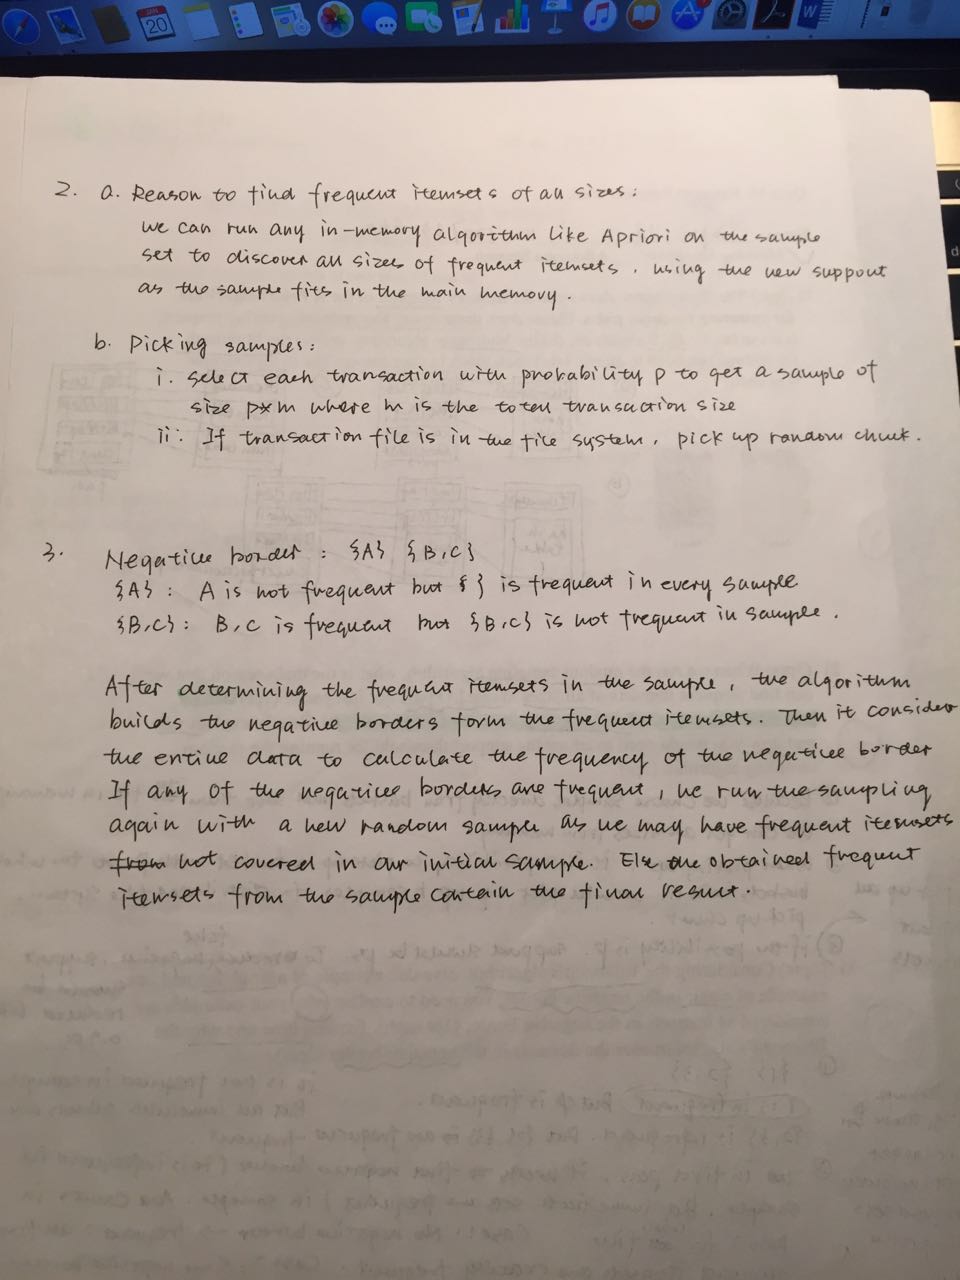 2. a. Reason to find frequent itemsets of all sizes:
we can run any in-memory algorithm like Apriori on the sample
set to discover all sizes of frequent itemsets, using the new support
as the sample fits in the main memory.
b. Picking samples:
i. select each transaction with probability p to get a sample of
size p×m where m is the total transaction size
ii: If transaction file is in the file system, pick up random chunk.
3. Negative border : {A} {B,C}
{A} : A is not frequent but { } is frequent in every sample
{B,C} : B, C is frequent but {B,C} is not frequent in sample.
After determining the frequent itemsets in the sample, the algorithm
builds the negative borders form the frequent itemsets. Then it consider
the entire data to calculate the frequency of the negative border
If any of the negative borders are frequent, we run the sampling
again with a new random sample as we may have frequent itemsets
from not covered in our initial sample. Else the obtained frequent
itemsets from the sample contain the final result.